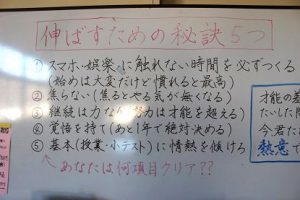 伸ばすための秘訣5つ
① スマホ・娯楽に触れない時間を必ずつくる
(始めは大変だけど慣れると最高)
② 焦らない(焦るとやる気が無くなる)
③ 継続は力なり(努力は才能を超える)
④ 覚悟を持て(あと1年で絶対決める)
⑤ 基本(授業・小テスト)に情熱を傾けろ
あなたは何項目クリア??
才能の差
たいした問
今君た
熱意で